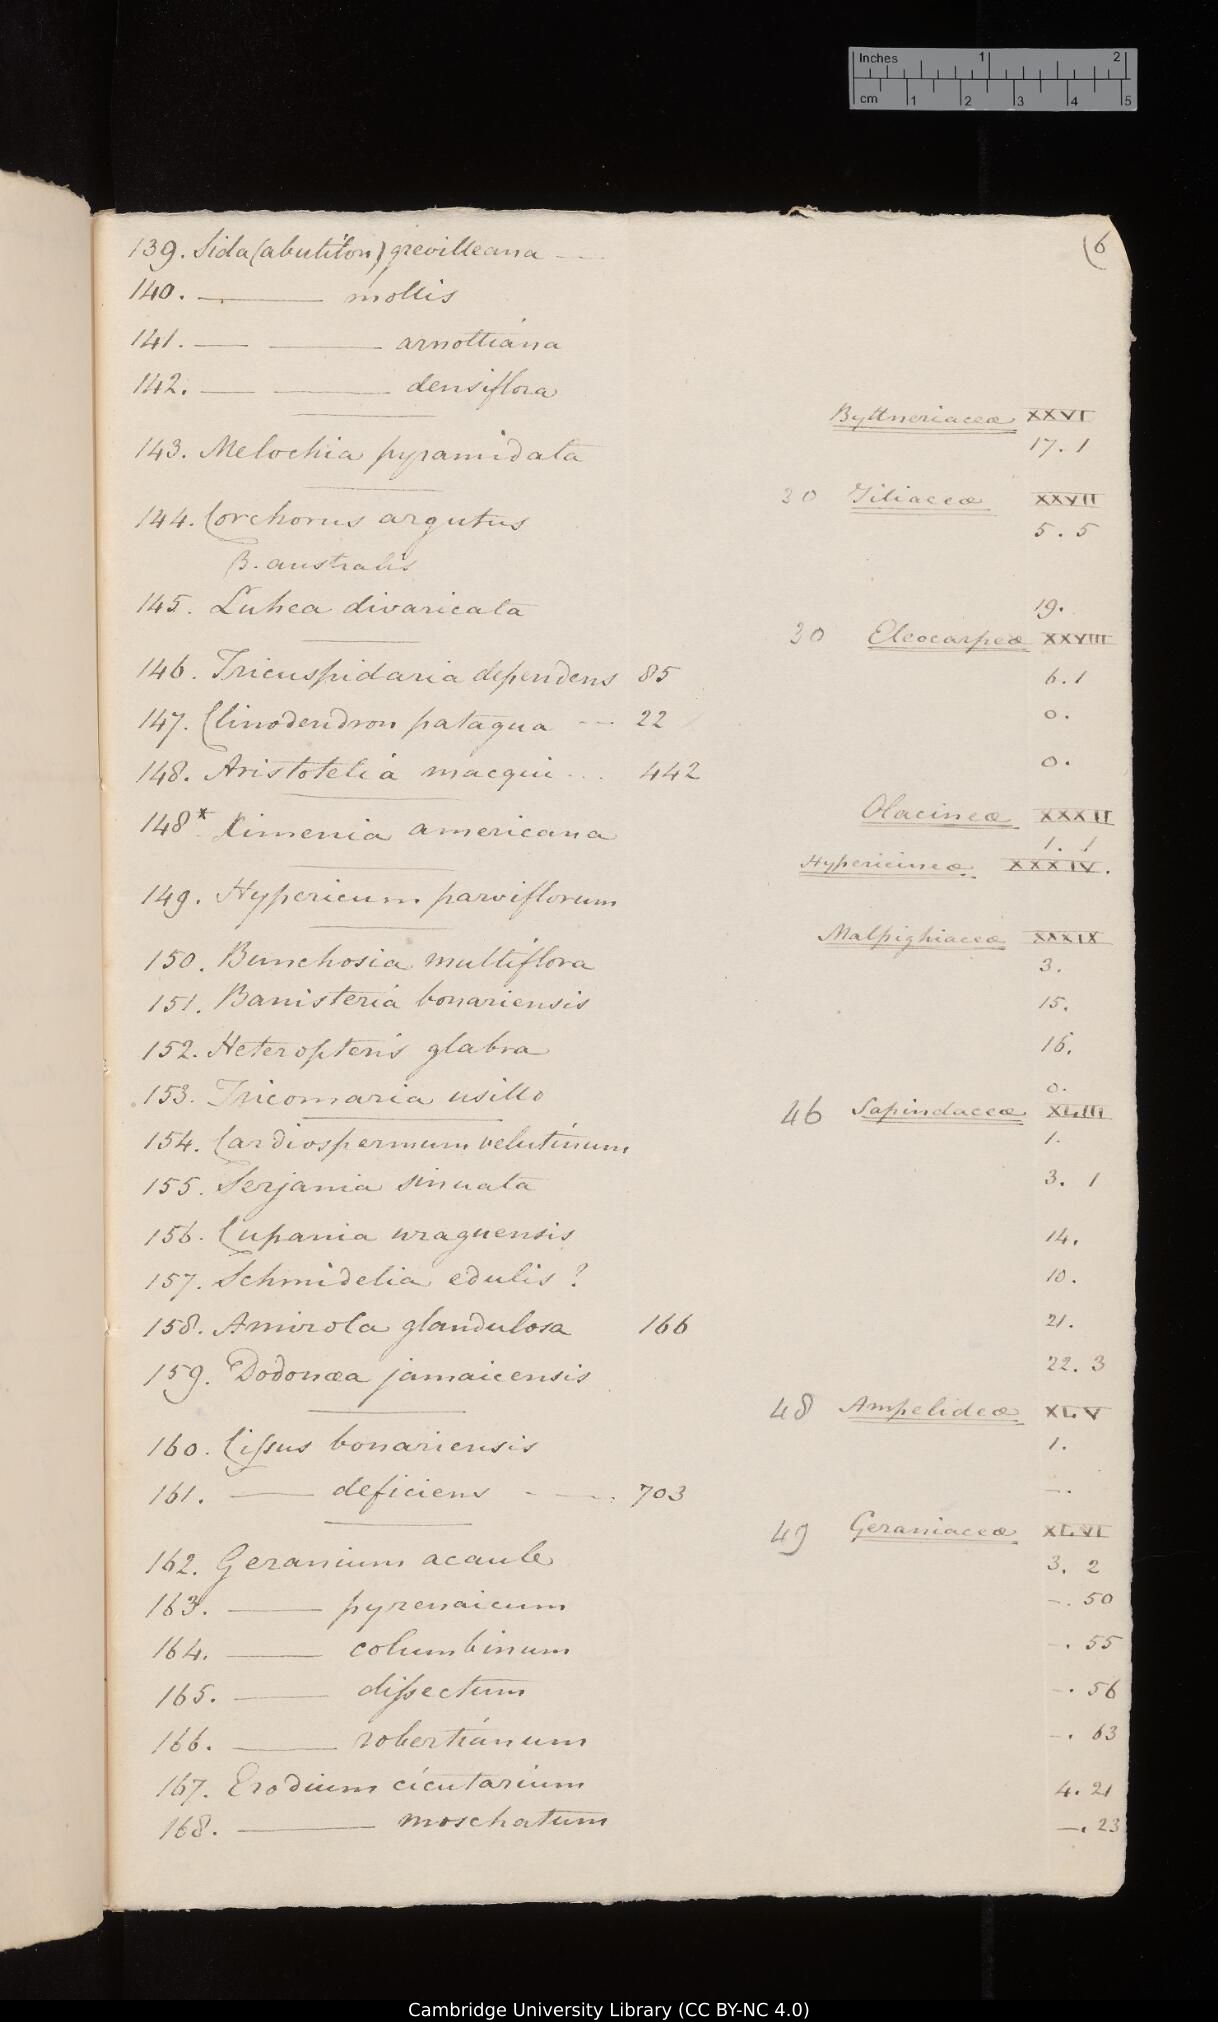 Inches 1 2
cm 1 2 3 4 5
(6
139. Sida (abutilon) grevilleana
140. ——— mollis
141. — ——— arnottiana
142. — ——— densiflora
Byttneriaceæ XXVI
143. Melochia pyramidata 17. 1
30 Tiliaceæ XXVII
144. Corchorus argutus 5. 5
B. australis
145. Luhea divaricata 19.
30 Eleocarpeæ XXVIII
146. Tricuspidaria dependens 85 6. 1
147. Clinodendron patagua --- 22 0.
148. Aristotelia macqui ... 442 0.
Olacineæ XXXII
148* Ximenia americana 1. 1
Hypericineæ. XXXIV.
149. Hypericum parviflorum
Malpighiaceæ XXXIX
150. Bunchosia multiflora 3.
151. Banisteria bonariensis 15.
152. Heteropteris glabra 16.
153. Tricomaria usillo 0.
46 Sapindaceæ XLIII
154. Cardiospermum velutinum 1.
155. Serjania sinuata 3. 1
156. Cupania uraguensis 14.
157. Schmidelia edulis? 10.
158. Amirola glandulosa 166 21.
159. Dodonæa jamaicensis 22. 3
48 Ampelideæ XLV
160. Cissus bonariensis 1.
161. —— deficiens - —. 703 —.
49 Geraniaceæ XLVI
162. Geranium acaule 3. 2
163. ——— pyrenaicum —. 50
164. ——— columbinum —. 55
165. ——— dissectum —. 56
166. ——— robertianum —. 63
167. Erodium cicutarium 4. 21
168. ——— moschatum —. 23
Cambridge University Library (CC BY-NC 4.0)